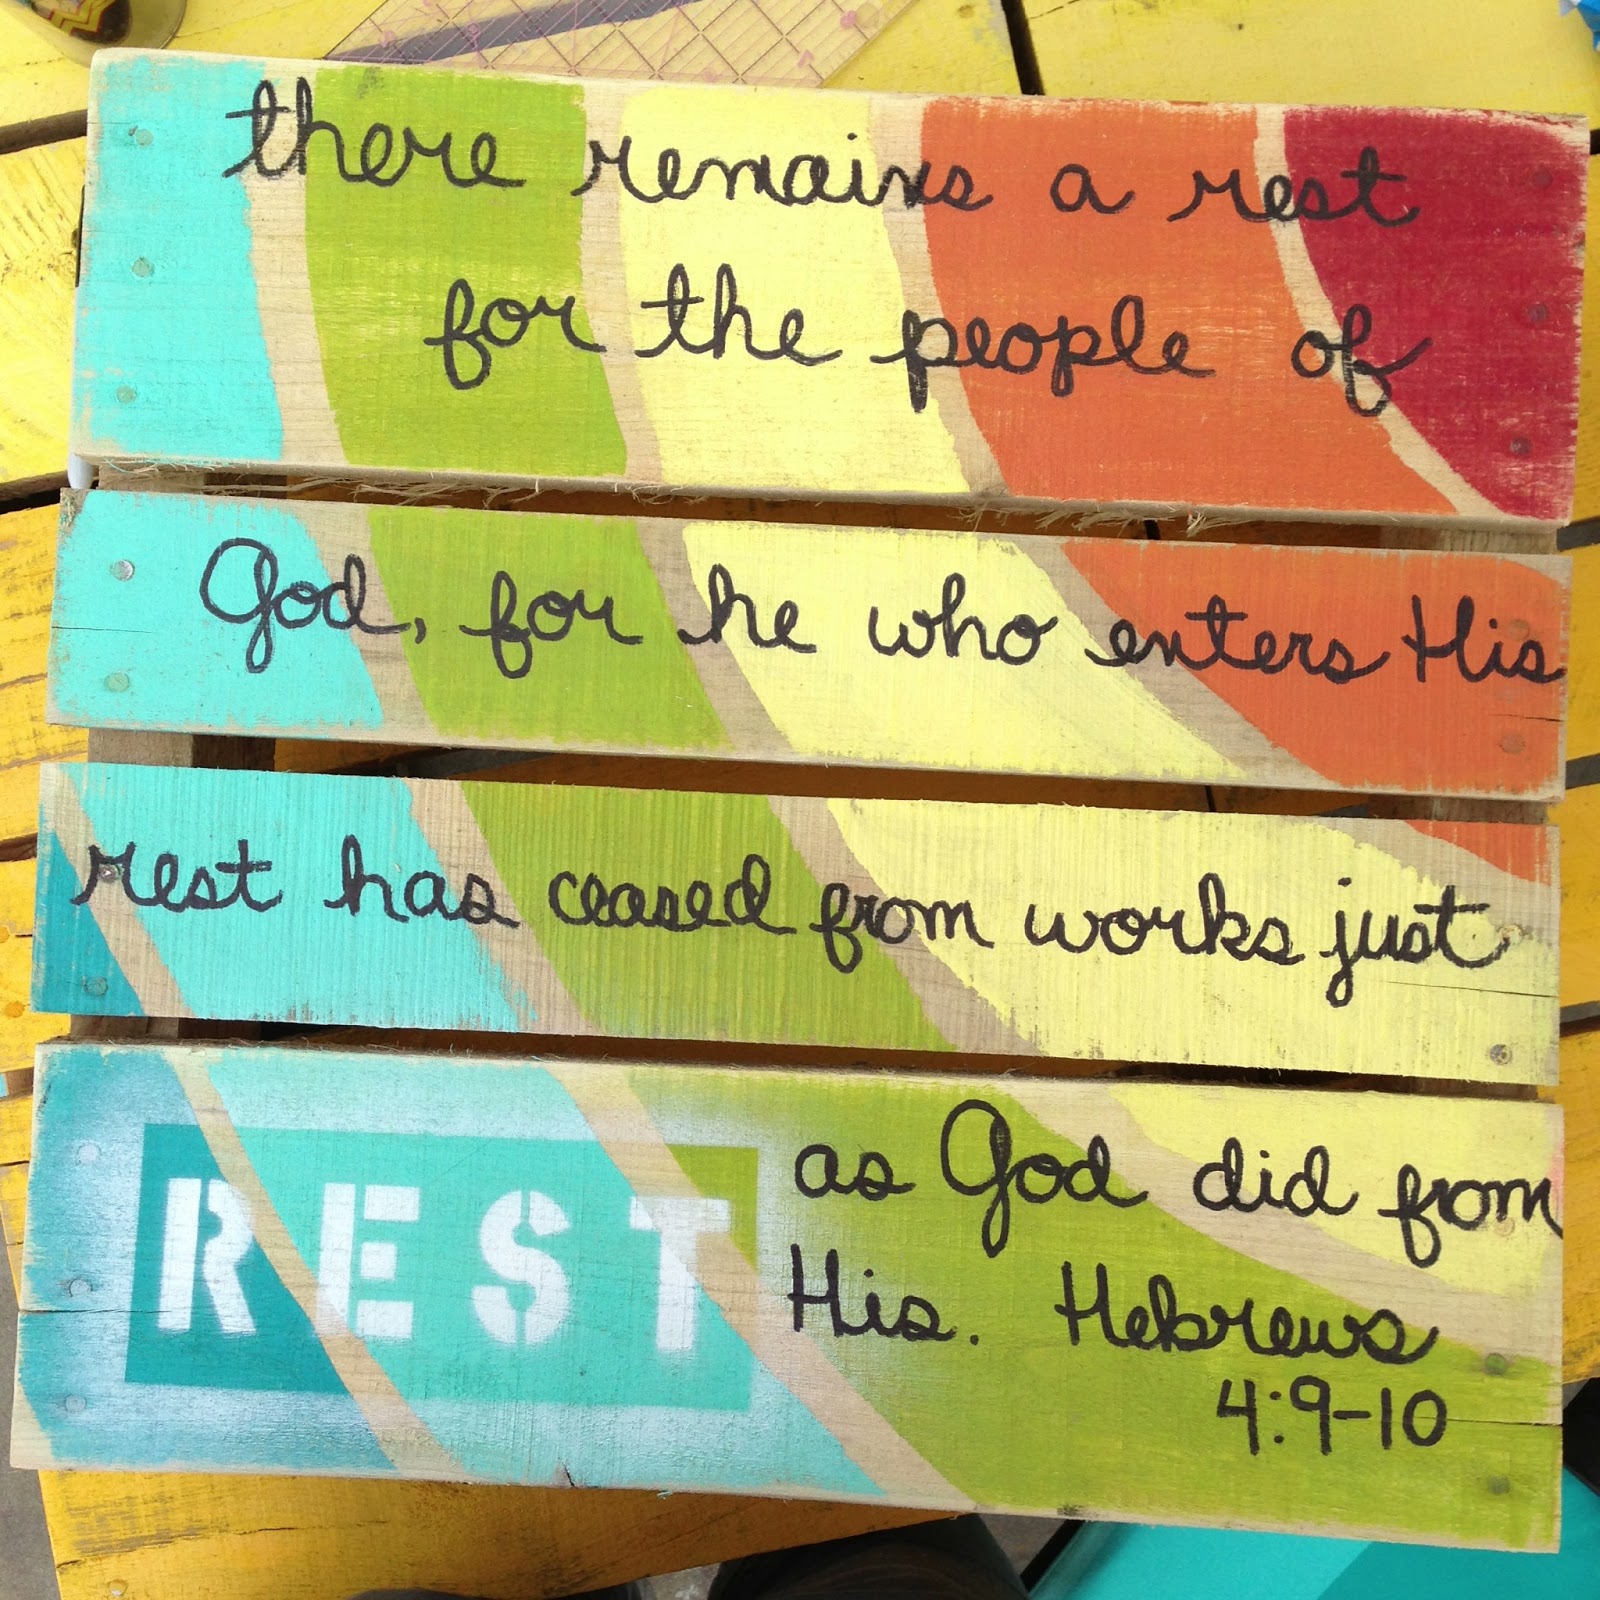 there remains a rest
for the people of
God, for he who enters His
rest has ceased from works just
as God did from
His. Hebrews
4:9-10
REST